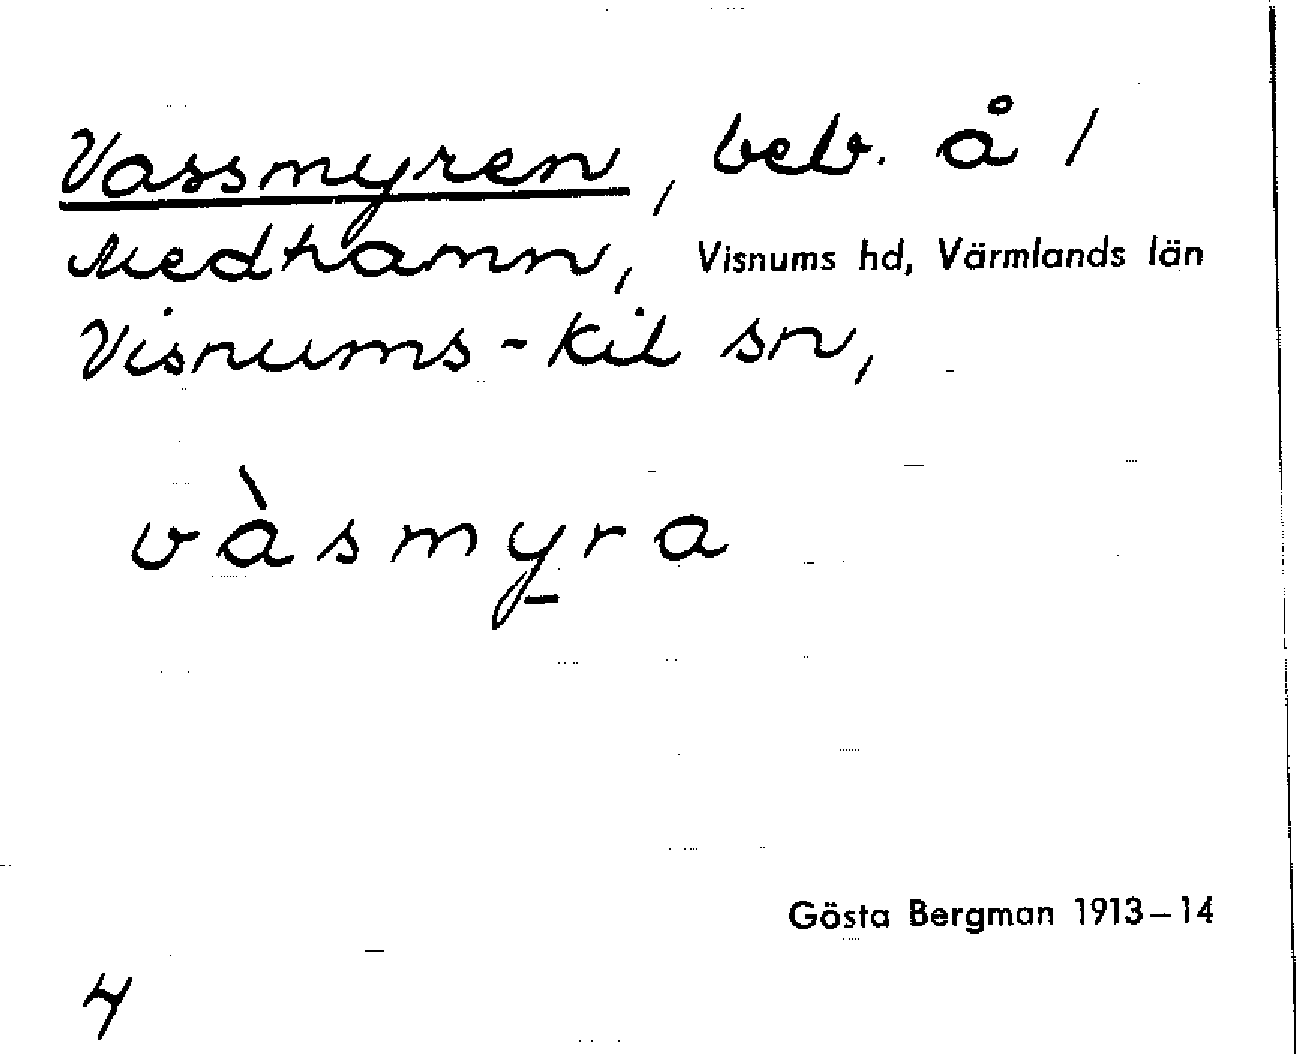 Vassmyren, beb. å /
Medhamn, Visnums hd, Värmlands län
Visnums-Kil sn,
vàsmyra
Gösta Bergman 1913–14
4